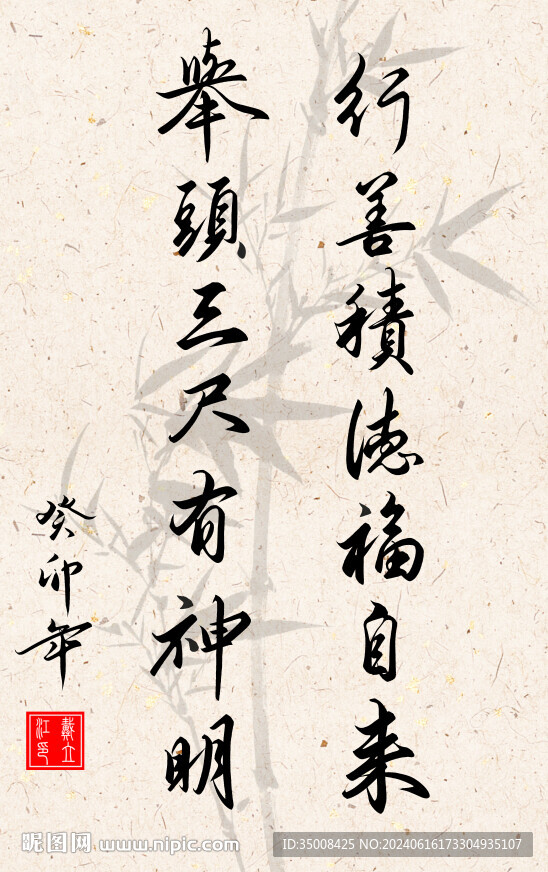 行善積德福自来
舉頭三尺有神明
癸卯年
戴立
江印
昵图网 www.nipic.com
ID:35008425 NO:20240616173304935107